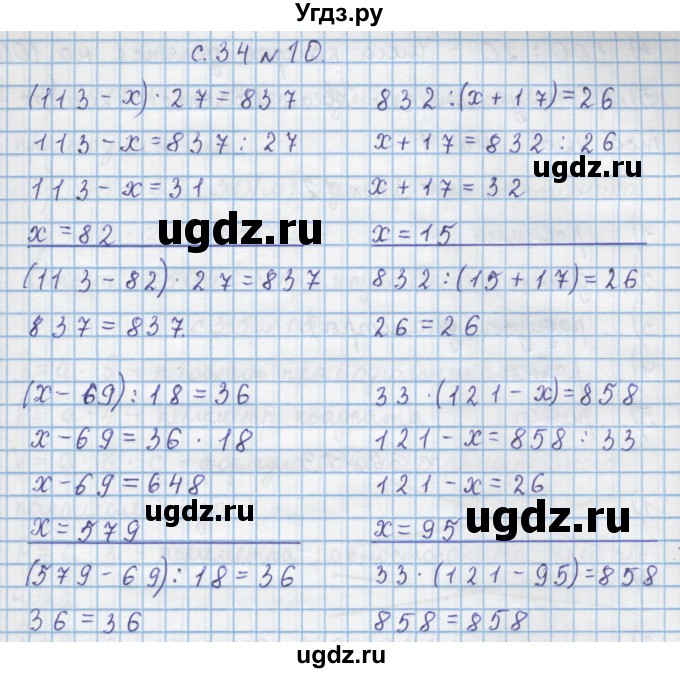 Угдз.ру
с. 34 № 10.
(113 - x) · 27 = 837
113 - x = 837 : 27
113 - x = 31
x = 82
(113 - 82) · 27 = 837
837 = 837.
832 : (x + 17) = 26
x + 17 = 832 : 26
x + 17 = 32
x = 15
832 : (15 + 17) = 26
26 = 26
(x - 69) : 18 = 36
x - 69 = 36 · 18
x - 69 = 648
x = 579
(579 - 69) : 18 = 36
36 = 36
33 · (121 - x) = 858
121 - x = 858 : 33
121 - x = 26
x = 95
33 · (121 - 95) = 858
858 = 858
ugdz.ru
ugdz.ru
ugdz.ru
ugdz.ru
ugdz.ru